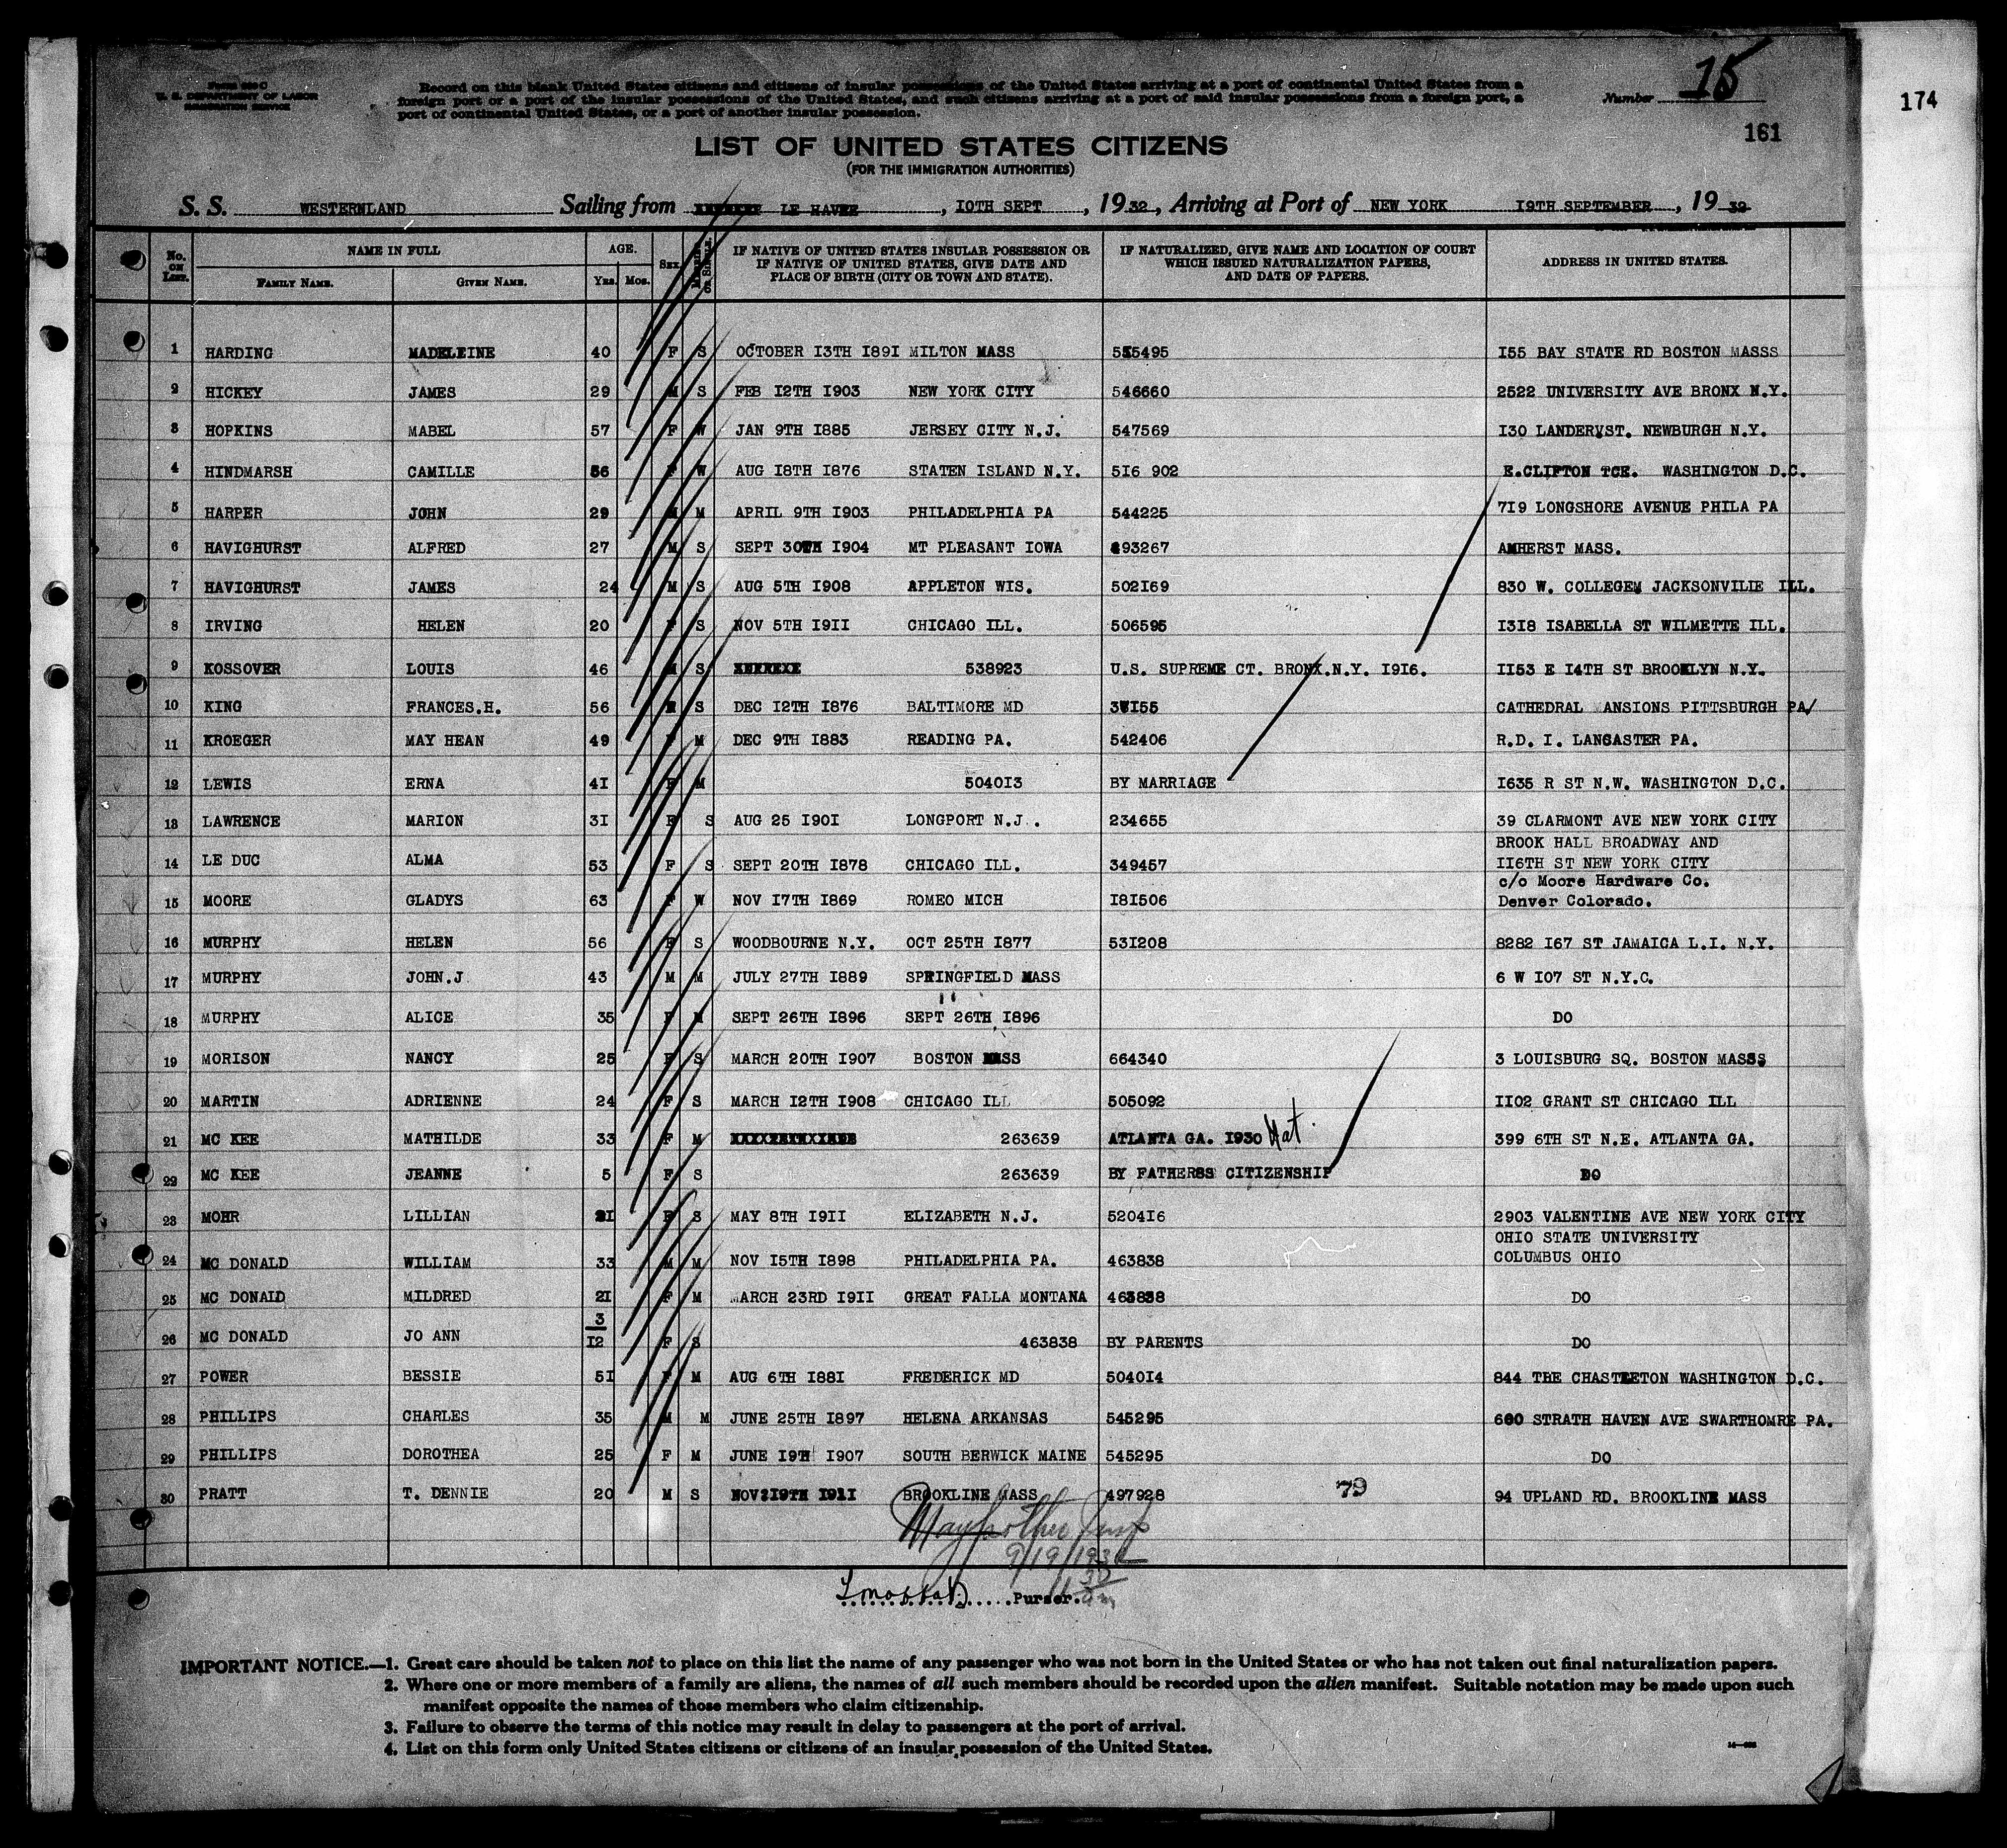 U. S. DEPARTMENT OF LABOR
IMMIGRATION SERVICE
Record on this blank United States citizens and citizens of insular possessions of the United States arriving at a port of continental United States from a
foreign port or a port of the insular possessions of the United States, and such citizens arriving at a port of said insular possessions from a foreign port, a
port of continental United States, or a port of another insular possession.
Number 15
174
161
LIST OF UNITED STATES CITIZENS
(FOR THE IMMIGRATION AUTHORITIES)
S. S. WESTERNLAND Sailing from LE HAVRE, 10TH SEPT, 1932, Arriving at Port of NEW YORK 19TH SEPTEMBER, 1932
No. on List. NAME IN FULL FAMILY NAME. GIVEN NAME. AGE. YRS. MOS. SEX MARRIED OR SINGLE. IF NATIVE OF UNITED STATES INSULAR POSSESSION OR IF NATIVE OF UNITED STATES, GIVE DATE AND PLACE OF BIRTH (CITY OR TOWN AND STATE). IF NATURALIZED, GIVE NAME AND LOCATION OF COURT WHICH ISSUED NATURALIZATION PAPERS, AND DATE OF PAPERS. ADDRESS IN UNITED STATES.
1 HARDING MADELEINE 40 F S OCTOBER 13TH 1891 MILTON MASS 555495 155 BAY STATE RD BOSTON MASSS
2 HICKEY JAMES 29 M S FEB 12TH 1903 NEW YORK CITY 546660 2522 UNIVERSITY AVE BRONX N.Y.
3 HOPKINS MABEL 57 F W JAN 9TH 1885 JERSEY CITY N.J. 547569 130 LANDERVST. NEWBURGH N.Y.
4 HINDMARSH CAMILLE 56 F W AUG 18TH 1876 STATEN ISLAND N.Y. 516 902 E.CLIFTON TCE. WASHINGTON D.C.
5 HARPER JOHN 29 M M APRIL 9TH 1903 PHILADELPHIA PA 544225 719 LONGSHORE AVENUE PHILA PA
6 HAVIGHURST ALFRED 27 M S SEPT 30TH 1904 MT PLEASANT IOWA 493267 AMHERST MASS.
7 HAVIGHURST JAMES 24 M S AUG 5TH 1908 APPLETON WIS. 502169 830 W. COLLEGEM JACKSONVILIE ILL.
8 IRVING HELEN 20 F S NOV 5TH 1911 CHICAGO ILL. 506595 1318 ISABELLA ST WILMETTE ILL.
9 KOSSOVER LOUIS 46 M S 538923 U.S. SUPREME CT. BRONX.N.Y. 1916. 1153 E 14TH ST BROOKLYN N.Y.
10 KING FRANCES.H. 56 S DEC 12TH 1876 BALTIMORE MD CATHEDRAL MANSIONS PITTSBURGH PA
11 KROEGER MAY HEAN 49 F M DEC 9TH 1883 READING PA. 542406 R.D. I. LANCASTER PA.
12 LEWIS ERNA 41 F M 504013 BY MARRIAGE 1635 R ST N.W. WASHINGTON D.C.
13 LAWRENCE MARION 31 F S AUG 25 1901 LONGPORT N.J.. 234655 39 CLARMONT AVE NEW YORK CITY
14 LE DUC ALMA 53 F S SEPT 20TH 1878 CHICAGO ILL. 349457 BROOK HALL BROADWAY AND
116TH ST NEW YORK CITY
c/o Moore Hardware Co.
15 MOORE GLADYS 63 F W NOV 17TH 1869 ROMEO MICH 181506 Denver Colorado.
16 MURPHY HELEN 56 F S WOODBOURNE N.Y. OCT 25TH 1877 531208 8282 167 ST JAMAICA L.I. N.Y.
17 MURPHY JOHN.J 43 M M JULY 27TH 1889 SPRINGFIELD MASS 6 W 107 ST N.Y.C.
18 MURPHY ALICE 35 F M SEPT 26TH 1896 SEPT 26TH 1896 DO
19 MORISON NANCY 25 F S MARCH 20TH 1907 BOSTON MASS 664340 3 LOUISBURG SQ. BOSTON MASSS
20 MARTIN ADRIENNE 24 F S MARCH 12TH 1908 CHICAGO ILL 505092 1102 GRANT ST CHICAGO ILL
21 MC KEE MATHILDE 33 F M 263639 ATLANTA GA. 1930 Nat. 399 6TH ST N.E. ATLANTA GA.
22 MC KEE JEANNE 5 F S 263639 BY FATHERSS CITIZENSHIP DO
23 MOHR LILLIAN 21 F S MAY 8TH 1911 ELIZABETH N.J. 520416 2903 VALENTINE AVE NEW YORK CITY
OHIO STATE UNIVERSITY
24 MC DONALD WILLIAM 33 M M NOV 15TH 1898 PHILADELPHIA PA. 463838 COLUMBUS OHIO
25 MC DONAID MILDRED 21 F M MARCH 23RD 1911 GREAT FALLA MONTANA 463838 DO
26 MC DONALD JO ANN 3/12 F S 463838 BY PARENTS DO
27 POWER BESSIE 51 F M AUG 6TH 1881 FREDERICK MD 504014 844 THE CHASTLETON WASHINGTON D.C.
28 PHILLIPS CHARLES 35 M M JUNE 25TH 1897 HELENA ARKANSAS 545295 600 STRATH HAVEN AVE SWARTHOMRE PA.
29 PHILLIPS DOROTHEA 25 F M JUNE 19TH 1907 SOUTH BERWICK MAINE 545295 DO
30 PRATT T. DENNIE 20 M S NOV 19TH 1911 BROOKLINE MASS 497928 94 UPLAND RD. BROOKLINE MASS
79
9/19/1932
Purser.
IMPORTANT NOTICE.—1. Great care should be taken not to place on this list the name of any passenger who was not born in the United States or who has not taken out final naturalization papers.
2. Where one or more members of a family are aliens, the names of all such members should be recorded upon the alien manifest. Suitable notation may be made upon such
manifest opposite the names of those members who claim citizenship.
3. Failure to observe the terms of this notice may result in delay to passengers at the port of arrival.
4. List on this form only United States citizens or citizens of an insular possession of the United States.